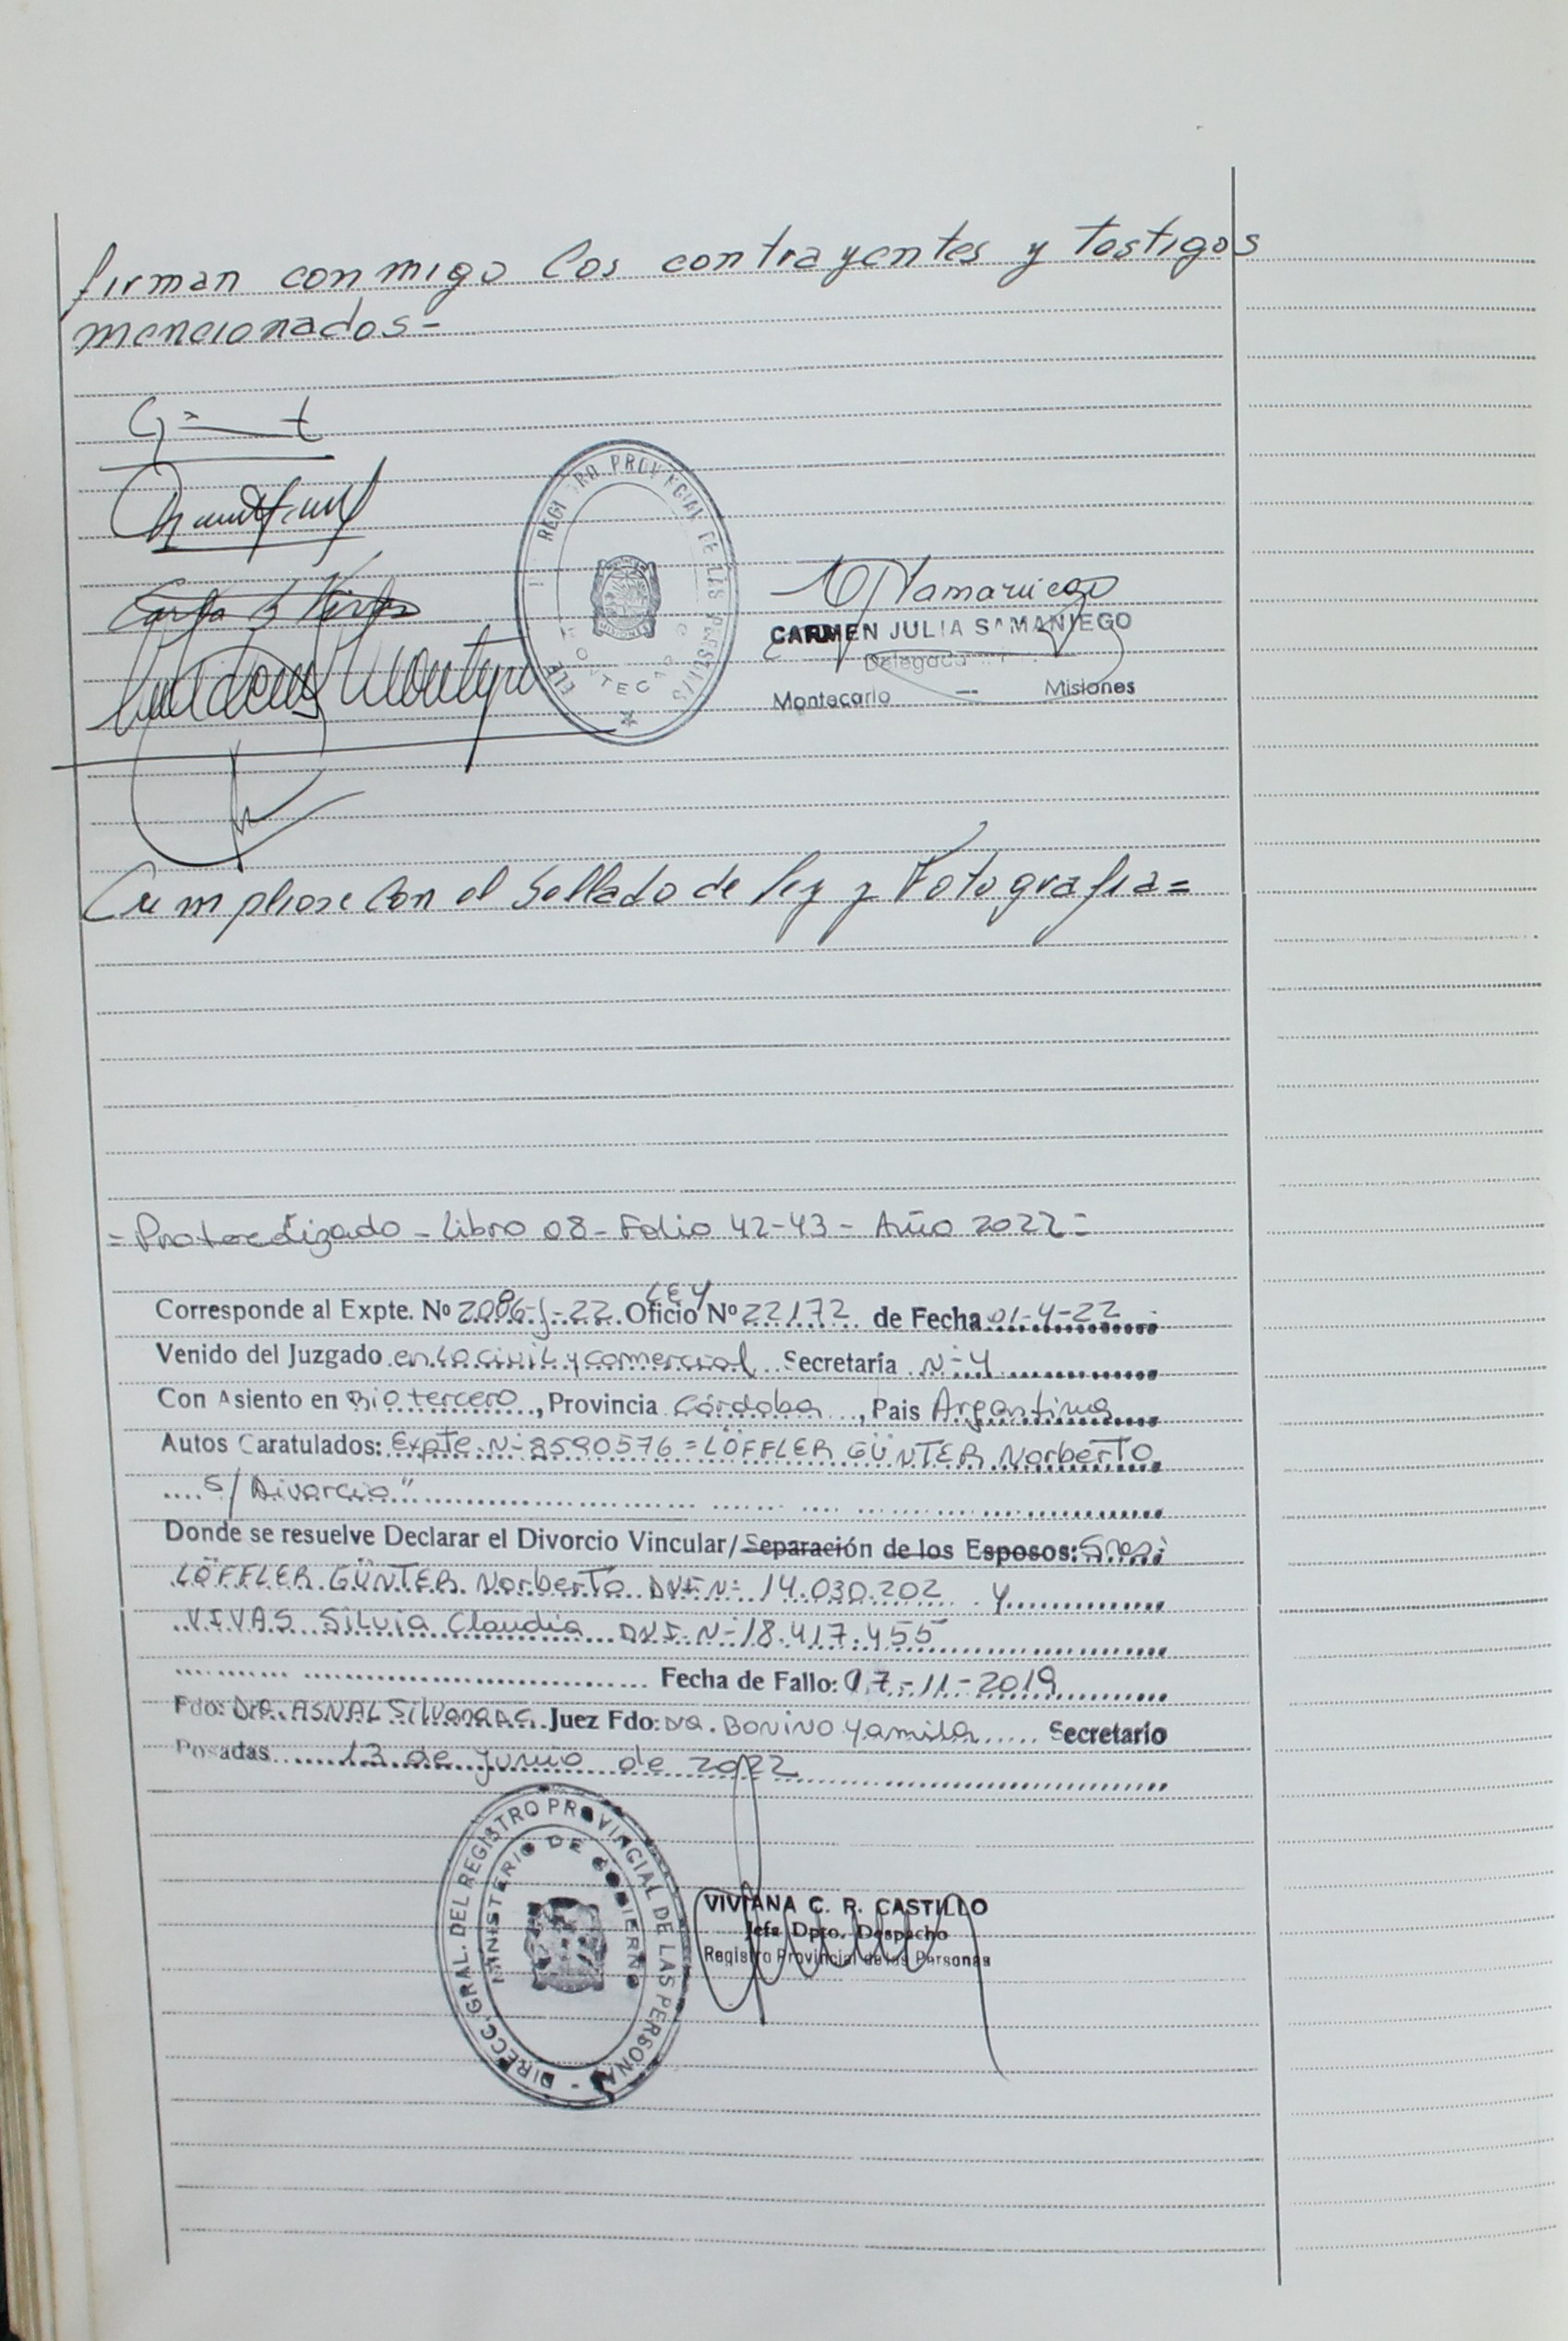 firman conmigo los contrayentes y testigos
mencionados=
REGISTRO PROVINCIAL DE LAS PERSONAS
MONTECARLO
MISIONES
CARMEN JULIA SAMANIEGO
Delegada
Montecarlo — Misiones
Cumpliose con el Sellado de ley y Fotografia=
=Protocolizado - Libro 08 - Folio 42-43 - Año 2022=
LEY
Corresponde al Expte. Nº 2086-J-22 Oficio Nº 22172 de Fecha 01-4-22
Venido del Juzgado en lo civil y comercial Secretaría N-4
Con Asiento en Rio tercero, Provincia Córdoba, Pais Argentina
Autos Caratulados: Expte. N- 8590576 = LÖFFLER GÜNTER Norberto
S/ Divorcio"
Donde se resuelve Declarar el Divorcio Vincular/Separación de los Esposos: Sres:
LÖFFLER GÜNTER Norberto DNI-N- 14.030.202 y
VIVAS Silvia Claudia DNI-N-18.417.455
Fecha de Fallo: 07-11-2019
Fdo: Dra. ASNAL Silvana Juez Fdo: Dra. BONINO Yamila Secretario
Posadas 13 de Junio de 2022
DIRECC. GRAL. DEL REGISTRO PROVINCIAL DE LAS PERSONAS
MINISTERIO DE GOBIERNO
VIVIANA C. R. CASTILLO
Jefa Dpto. Despacho
Registro Provincial de las Personas